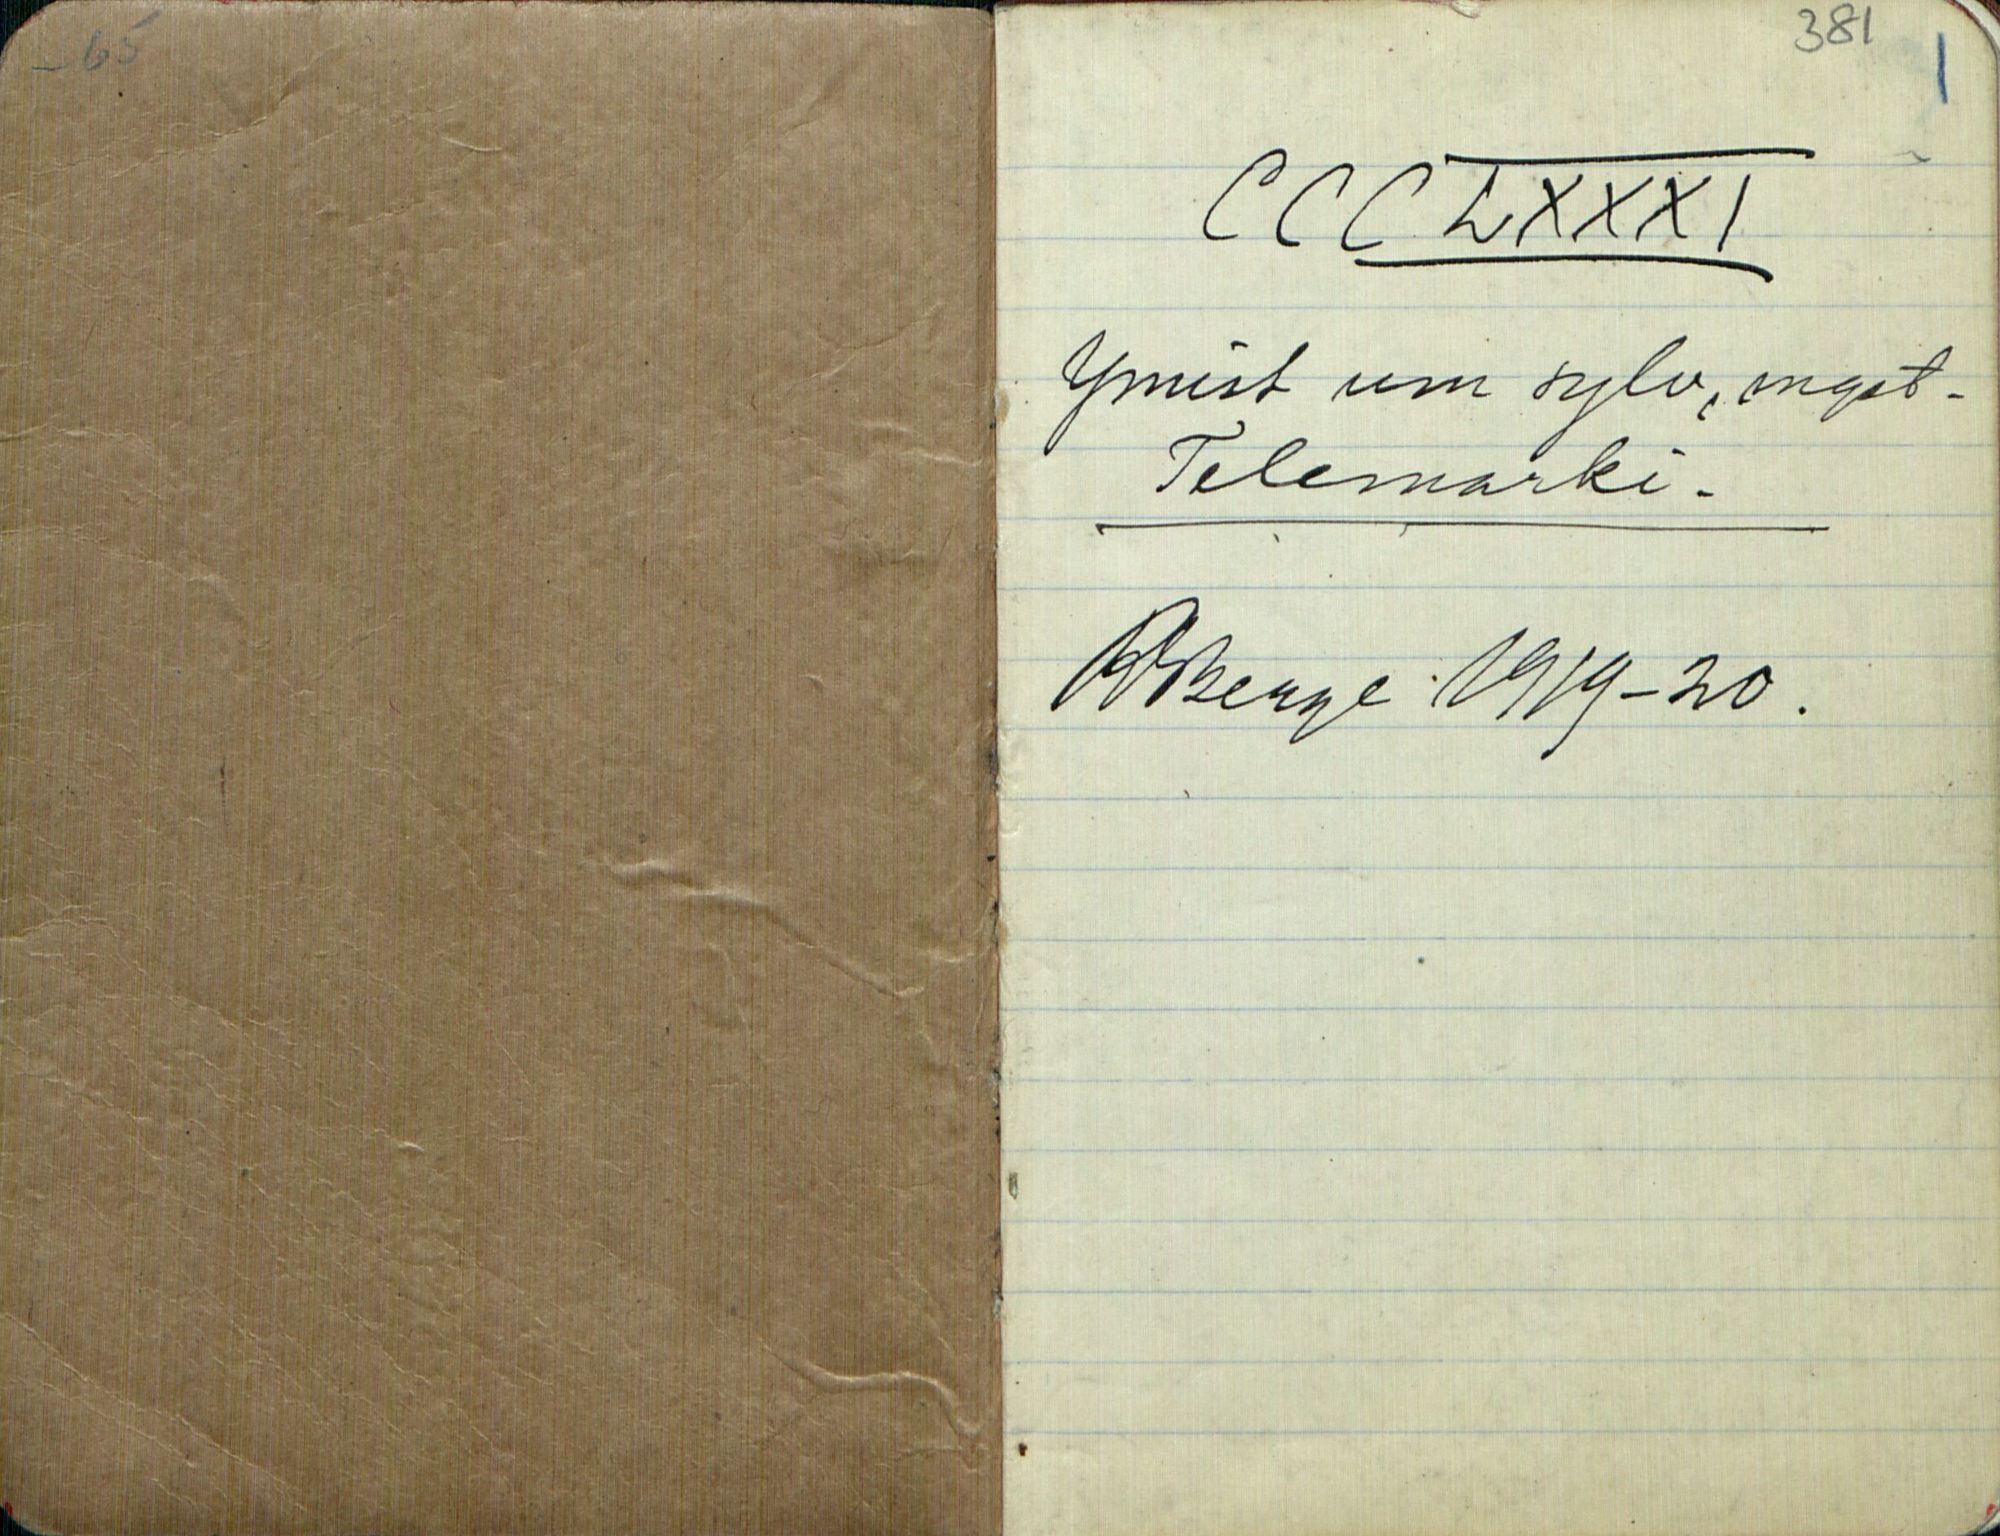 – 65
381
1
CCCLXXXI
Ymist um sylv, mest-
Telemarki.
RBerge 1919-20.